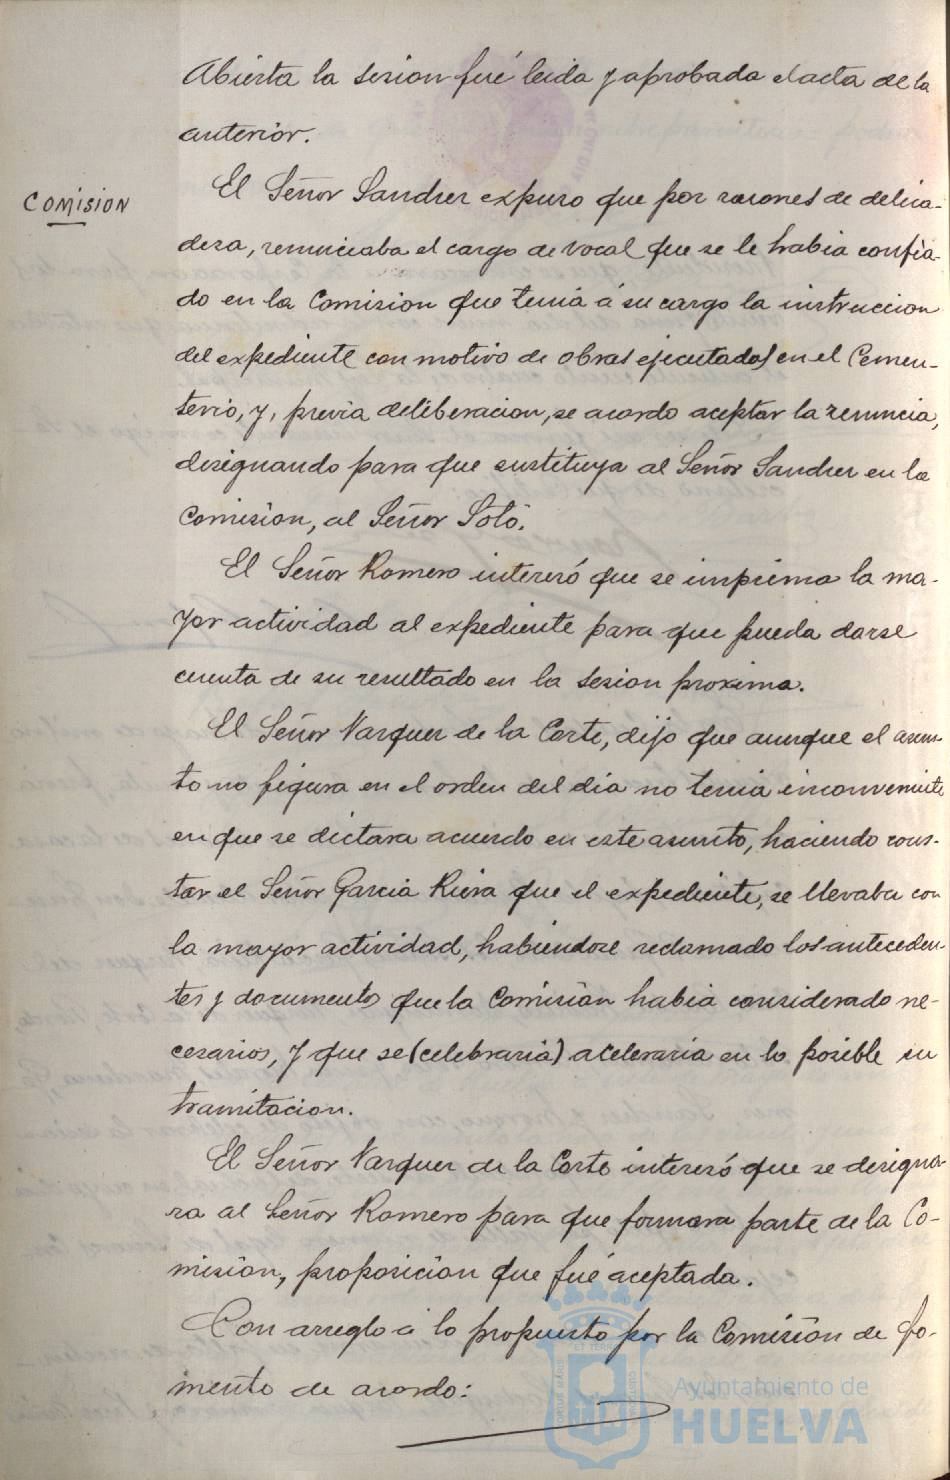 Abierta la sesion fué leida y aprobada el acta de la
anterior.
COMISION
El Señor Sandrer expuso que por razones de delica-
deza, renunciaba el cargo de vocal que se le habia confia-
do en la Comision que tenia á su cargo la instruccion
del expediente con motivo de obras ejecutadas en el Cemen-
terio, y, previa deliberacion, se acordo aceptar la renuncia,
designando para que sustituya al Señor Sandrer en la
Comision, al Señor Soto.
El Señor Romero interesó que se imprima la ma-
yor actividad al expediente para que pueda darse
cuenta de su resultado en la sesion proxima.
El Señor Vazquez de la Corte, dijo que aunque el asun-
to no figura en el orden del dia no tenia inconveniente
en que se dictara acuerdo en este asunto, haciendo cons-
tar el Señor Garcia Riera que el expediente, se llevaba con
la mayor actividad, habiendose reclamado los anteceden-
tes y documentos que la Comision habia considerado ne-
cesarios, y que se (celebraria) aceleraria en lo posible su
tramitacion.
El Señor Vazquez de la Corte interesó que se designa-
ra al Señor Romero para que formara parte de la Co-
mision, proposicion que fué aceptada.
Con arreglo a lo propuesto por la Comision de fo-
mento de acordo:
Ayuntamiento de
HUELVA